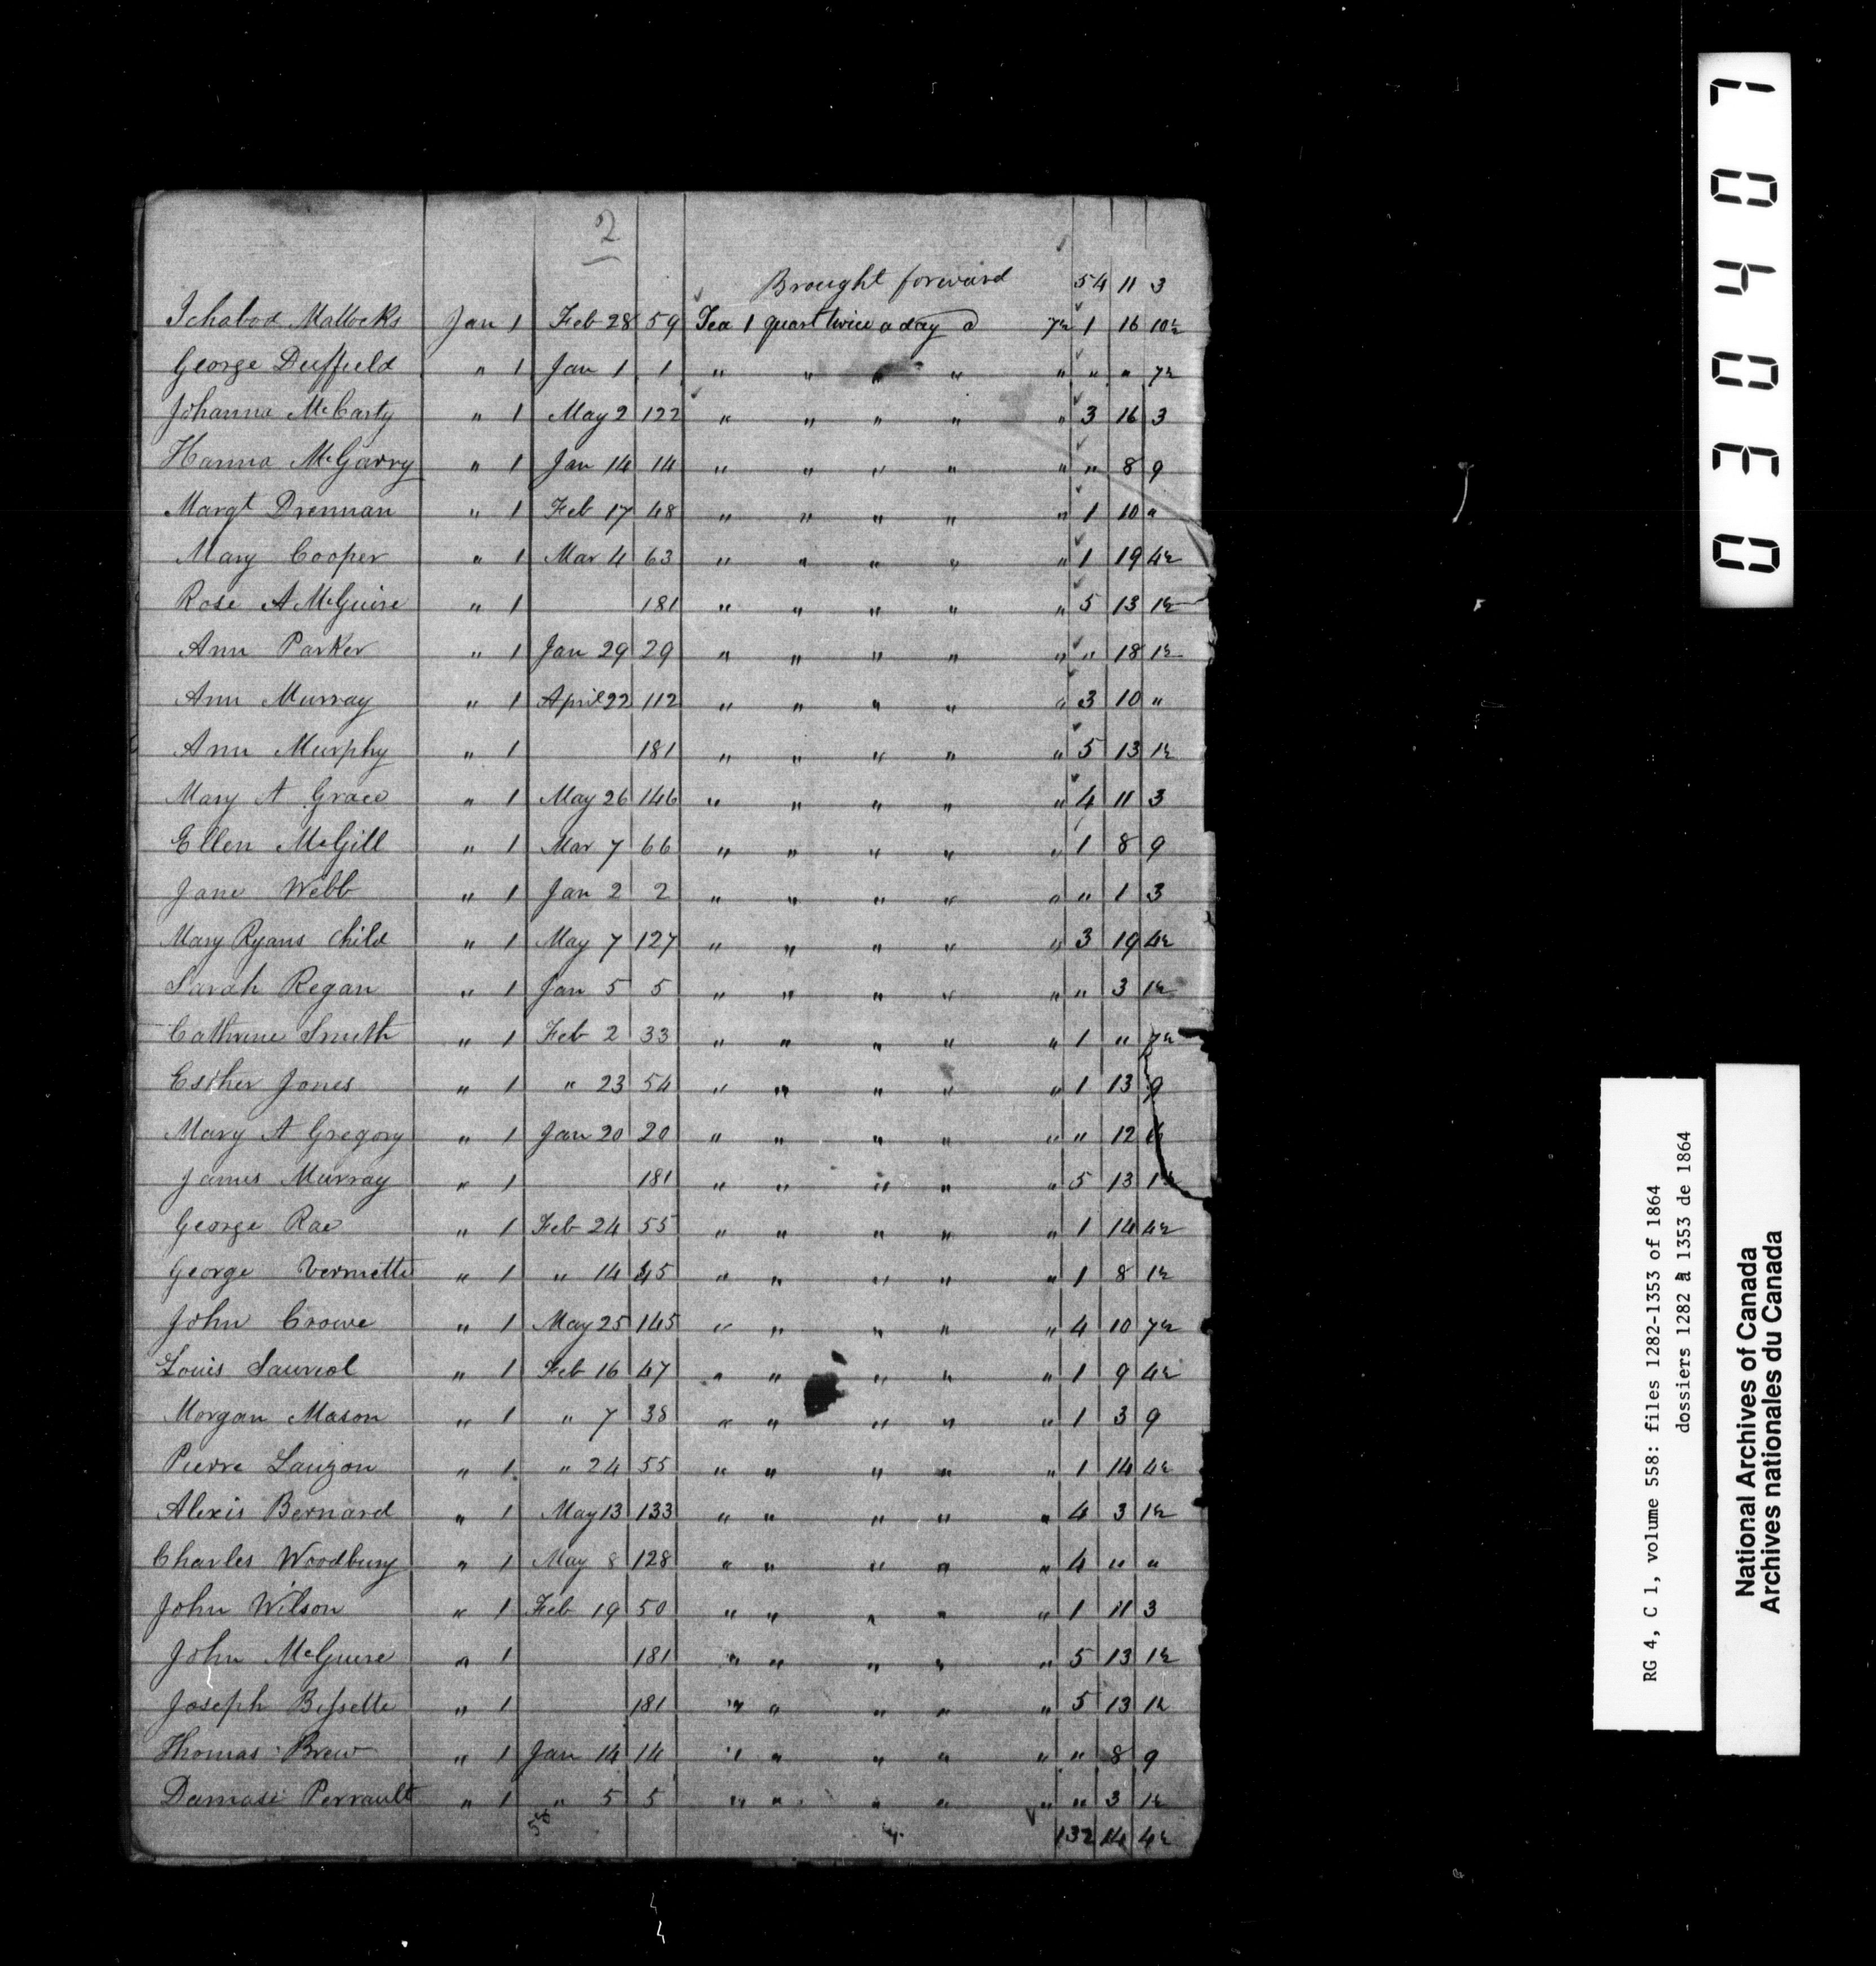 2
Brought forward 54 11 3
Ichabod Mattocks Jan 1 Feb 28 59 Tea 1 quart twice a day @ 7½ 1 16 10½
George Duffield " 1 Jan 1 1 " " " " " " " 7½
Johanna McCarty " 1 May 2 122 " " " " " 3 16 3
Hanna McGarry " 1 Jan 14 14 " " " " " " 8 9
Margt Drennan " 1 Feb 17 48 " " " " " 1 10 "
Mary Cooper " 1 Mar 4 63 " " " " " 1 19 4½
Rose A McGuire " 1 181 " " " " " 5 13 1½
Ann Parker " 1 Jan 29 29 " " " " " " 18 1½
Ann Murray " 1 April 22 112 " " " " " 3 10 "
Ann Murphy " 1 181 " " " " " 5 13 1½
Mary A Grace " 1 May 26 146 " " " " " 4 11 3
Ellen McGill " 1 Mar 7 66 " " " " " 1 8 9
Jane Webb " 1 Jan 2 2 " " " " " " 1 3
Mary Ryans Child " 1 May 7 127 " " " " " 3 19 4½
Sarah Regan " 1 Jan 5 5 " " " " " " 3 1½
Cathrine Smith " 1 Feb 2 33 " " " " " 1 " 7½
Esther Jones " 1 " 23 54 " " " " " 1 13 9
Mary A Gregory " 1 Jan 20 20 " " " " " " 12 6
James Murray " 1 181 " " " " " 5 13 1½
George Rae " 1 Feb 24 55 " " " " " 1 14 4½
George Vermette " 1 " 14 45 " " " " " 1 8 1½
John Crowe " 1 May 25 145 " " " " " 4 10 7½
Louis Sauriol " 1 Feb 16 47 " " " " " 1 9 4½
Morgan Mason " 1 " 7 38 " " " " " 1 3 9
Pierre Lauzon " 1 " 24 55 " " " " " 1 14 4½
Alexis Bernard " 1 May 13 133 " " " " " 4 3 1½
Charles Woodbury " 1 May 8 128 " " " " " 4 " "
John Wilson " 1 Feb 19 50 " " " " " 1 11 3
John McGuire " 1 181 " " " " " 5 13 1½
Joseph Bissette " 1 181 " " " " " 5 13 1½
Thomas Brew " 1 Jan 14 14 " " " " " " 8 9
Damase Perrault " 1 " 5 5 " " " " " " 3 1½
132 14 4½
030407
RG 4, C 1, volume 558: files 1282-1353 of 1864
dossiers 1282 à 1353 de 1864
National Archives of Canada
Archives nationales du Canada